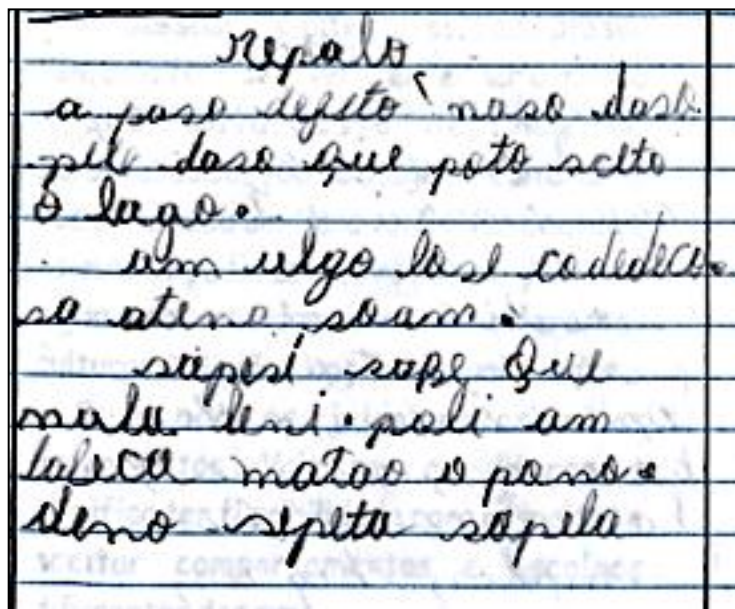 repalo
a paso dejsto naso daso
pile daso que poto scito
o lago.
um ulgo lose codedeco.
so ateno soam.
sapesi sape que
nala leni. pali am
laleca matao o pono.
deno sepeta sapela